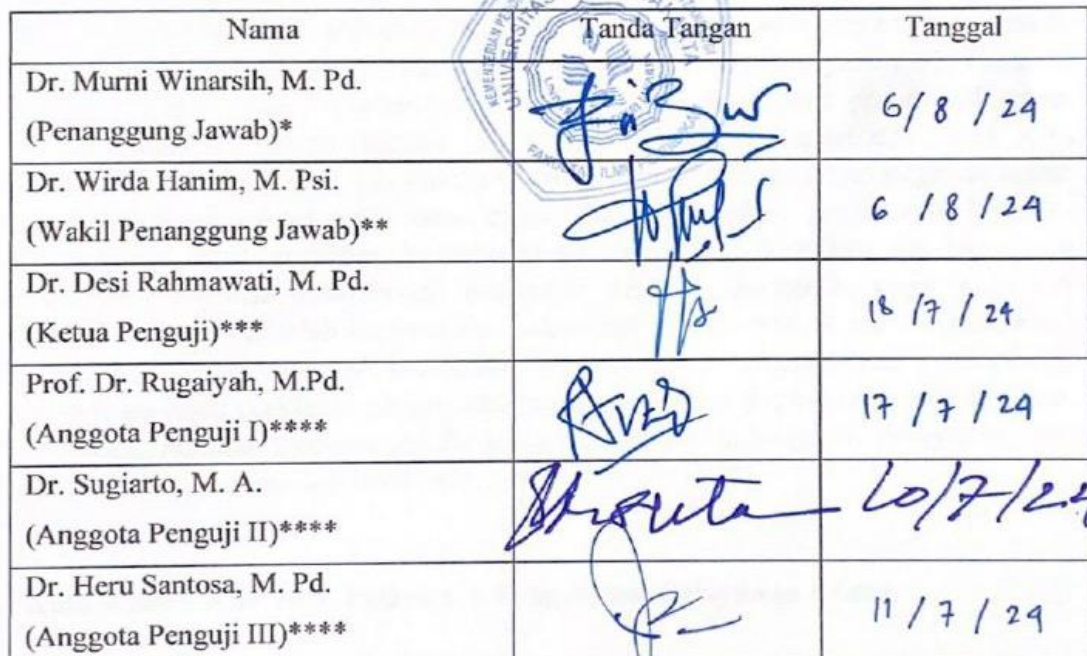 Nama Tanda Tangan Tanggal
Dr. Murni Winarsih, M. Pd.
(Penanggung Jawab)* 6/8/24
Dr. Wirda Hanim, M. Psi.
(Wakil Penanggung Jawab)** 6/8/24
Dr. Desi Rahmawati, M. Pd.
(Ketua Penguji)*** 18/7/24
Prof. Dr. Rugaiyah, M.Pd.
(Anggota Penguji I)**** 17/7/24
Dr. Sugiarto, M. A.
(Anggota Penguji II)****
Dr. Heru Santosa, M. Pd.
(Anggota Penguji III)**** 11/7/24